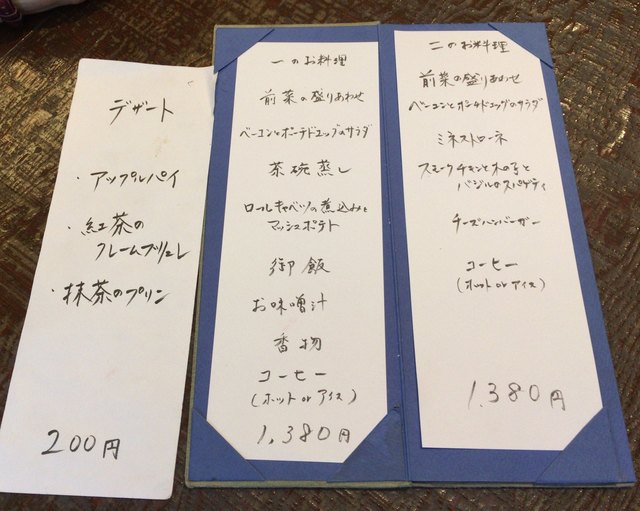 デザート
・アップルパイ
・紅茶の
クレームブリュレ
・抹茶のプリン
200円
一のお料理
前菜の盛りあわせ
ベーコンとポーチドエッグのサラダ
茶碗蒸し
ロールキャベツの煮込みと
マッシュポテト
御飯
お味噌汁
香物
コーヒー
(ホット or アイス)
1,380円
二のお料理
前菜の盛りあわせ
ベーコンとポーチドエッグのサラダ
ミネストローネ
スモークチキンと木の子と
バジルのスパゲティ
チーズハンバーガー
コーヒー
(ホット or アイス)
1,380円